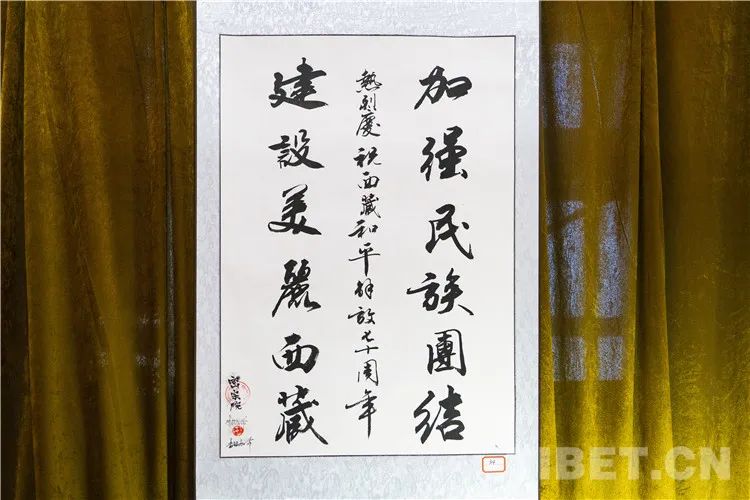 加强民族團结
熱烈慶祝西藏和平解放七十周年
建設美麗西藏
34
IBET.CN